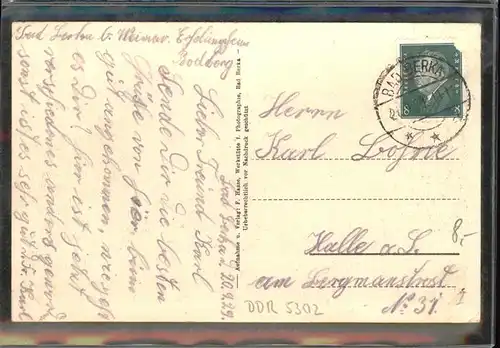 Bad Berka b. Weimar. Erholungsheim
Rodberg
Bad Berka 20.9.29.
Lieber Freund Karl
Sende Dir die besten
Grüße von hier beim
gut angekommen, wie geht
es Dir, hier ist jetzt
verschiedenes anders
sonst ist es sehr gut. Dr. Karl
Aufnahme u. Verlag: F. Haase, Werkstätte f. Photographie, Bad Berka -
Urheberrechtlich vor Nachdruck geschützt
BAD BERKA
8 8
Herrn
Karl Bohne
Halle a. S.
am Bergmanstrost
No. 31.
8.-
DDR 5302